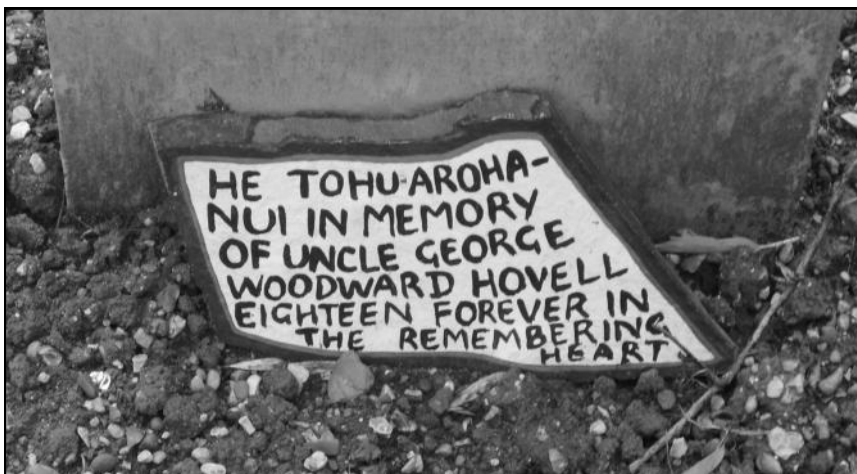 HE TOHU-AROHA-
NUI IN MEMORY
OF UNCLE GEORGE
WOODWARD HOVELL
EIGHTEEN FOREVER IN
THE REMEMBERING
HEART.